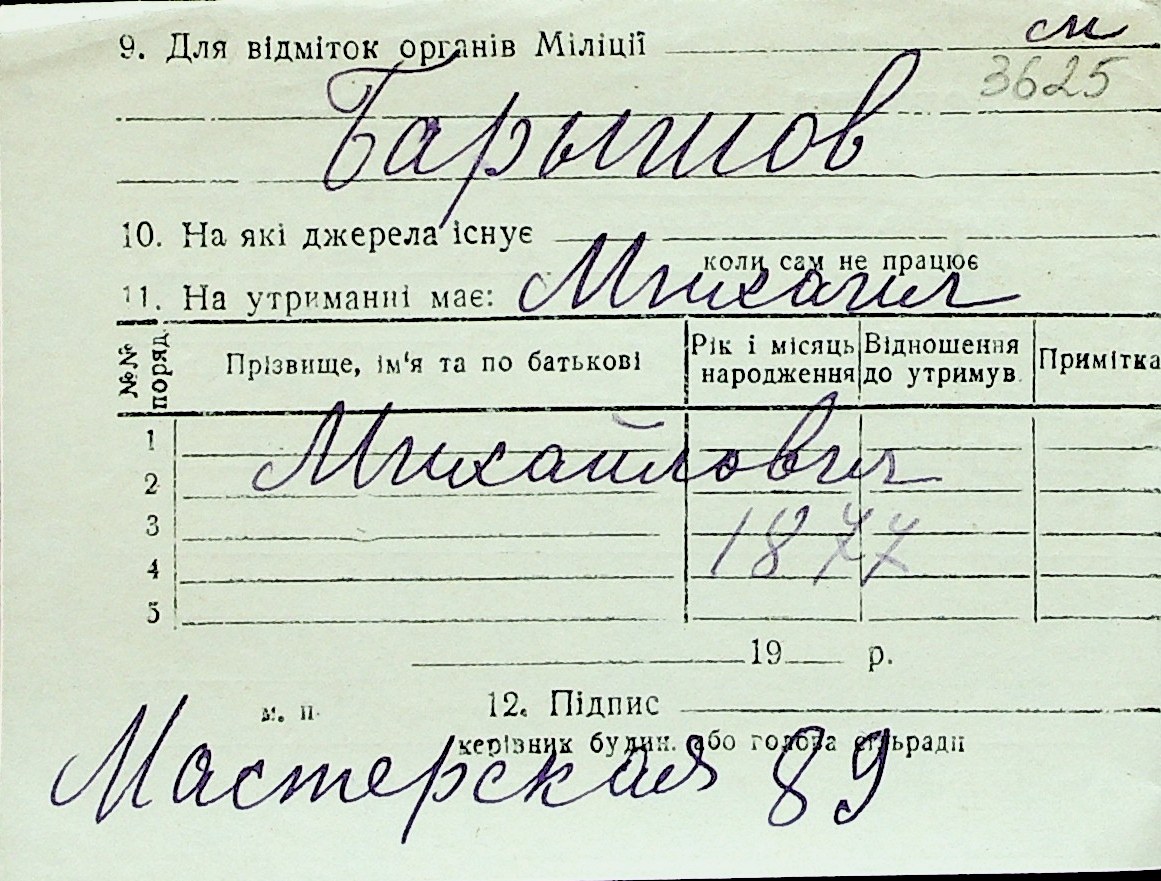 9. Для відміток органів Міліції
см
3625
Барышов
10. На які джерела існує
коли сам не працює
11. На утриманні має:
Михаил
№№ поряд. Прізвище, ім'я та по батькові Рік і місяць народження Відношення до утримув. Примітка
1
Михайлович
2
3
1877
4
5
19 р.
м. п. 12. Підпис
керівник будин. або голова сільради
Мастерская 89